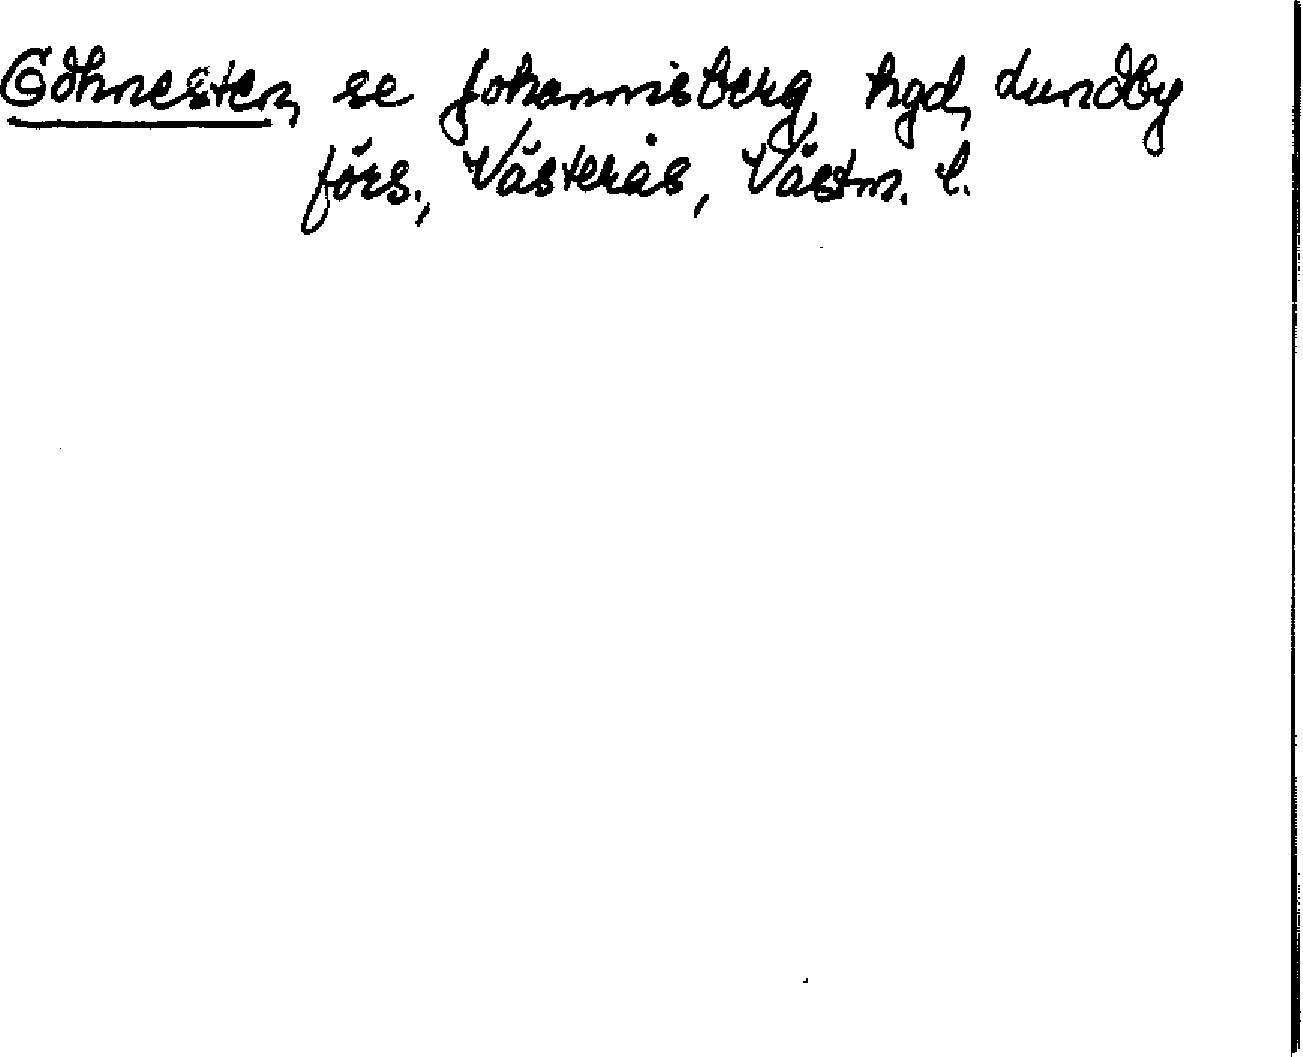 Göhnesten, se Johannisberg, hgd, Lundby
förs., Västerås, Västm. l.